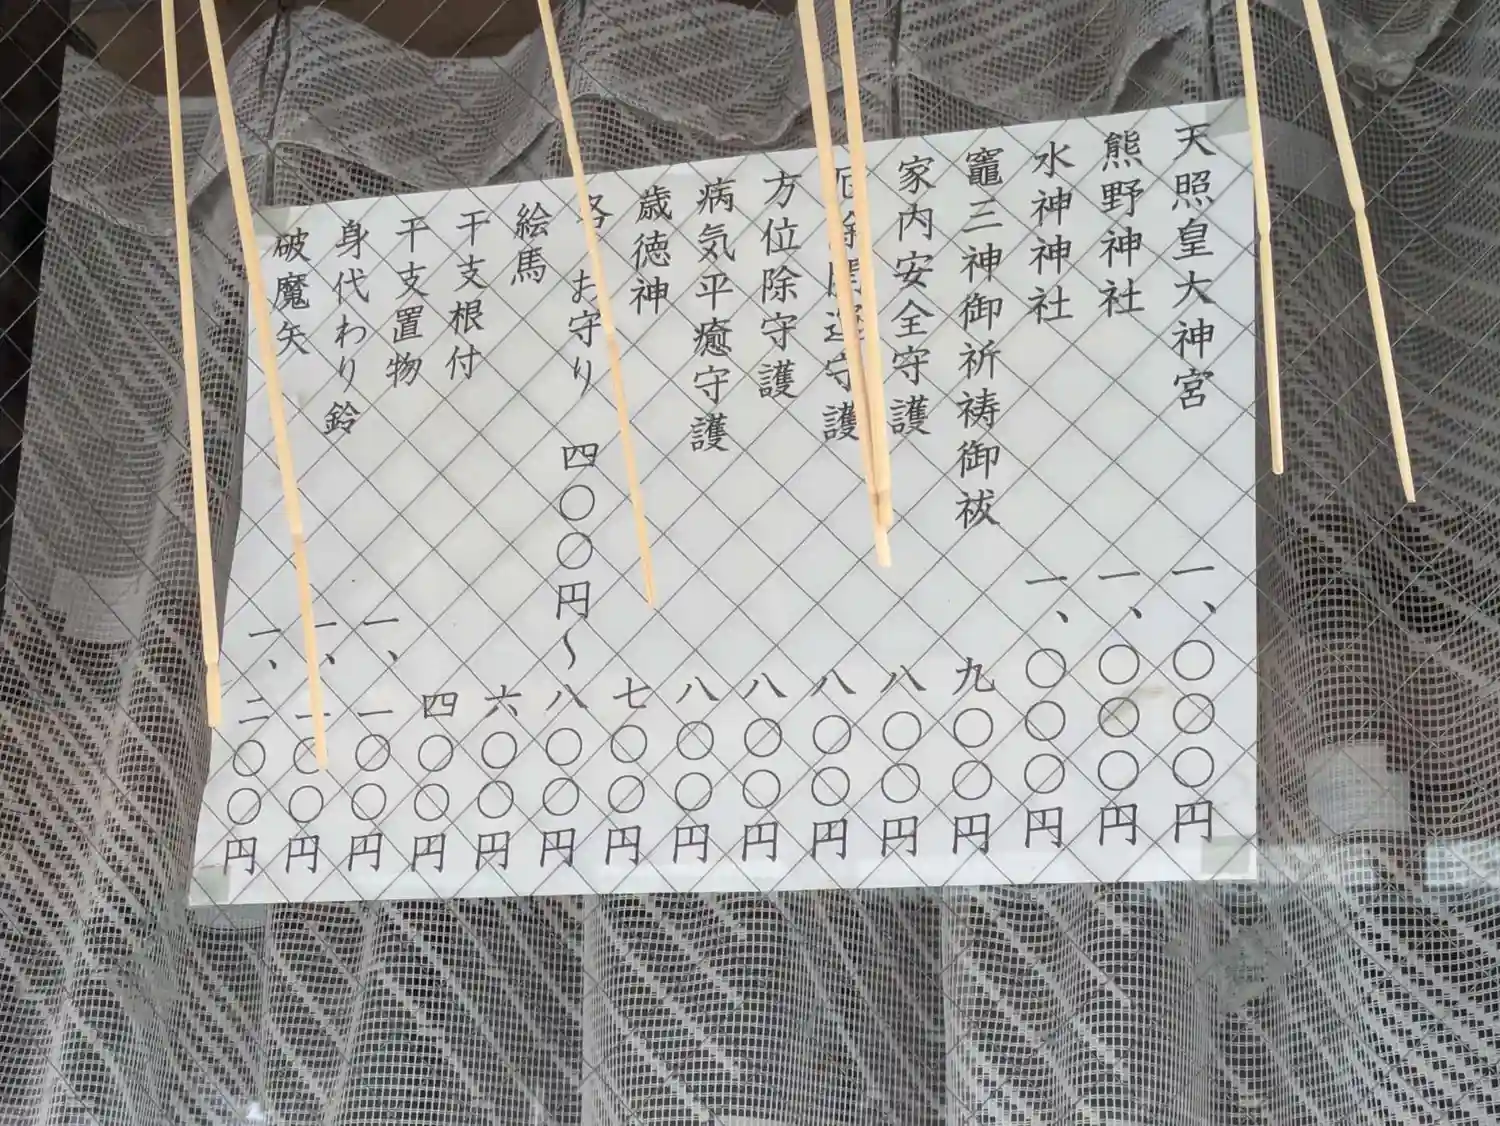 天照皇大神宮 一、〇〇〇円
熊野神社 一、〇〇〇円
水神神社 一、〇〇〇円
竈三神御祈祷御祓 九〇〇円
家内安全守護 八〇〇円
厄除開運守護 八〇〇円
方位除守護 八〇〇円
病気平癒守護 八〇〇円
歳徳神 七〇〇円
各 お守り 四〇〇円〜八〇〇円
絵馬 六〇〇円
干支根付 四〇〇円
干支置物 一、一〇〇円
身代わり鈴 一、一〇〇円
破魔矢 一、二〇〇円